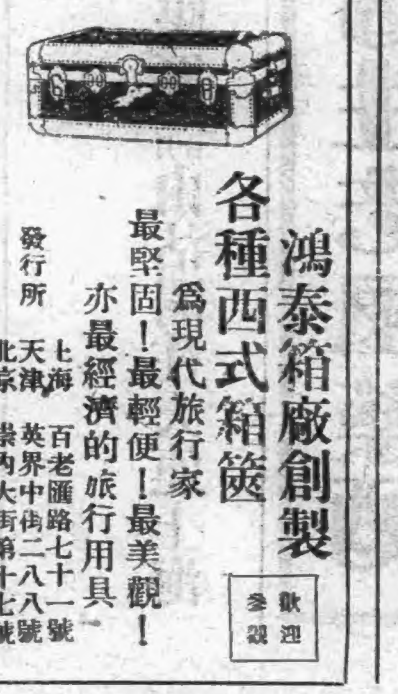 鴻泰箱廠創製
各種西式箱篋
爲現代旅行家
最堅固！最輕便！最美觀！
亦最經濟的旅行用具
歡迎
參觀
發行所
上海 百老匯路七十一號
天津 英界中街二八八號
北京 崇內大街第十七號